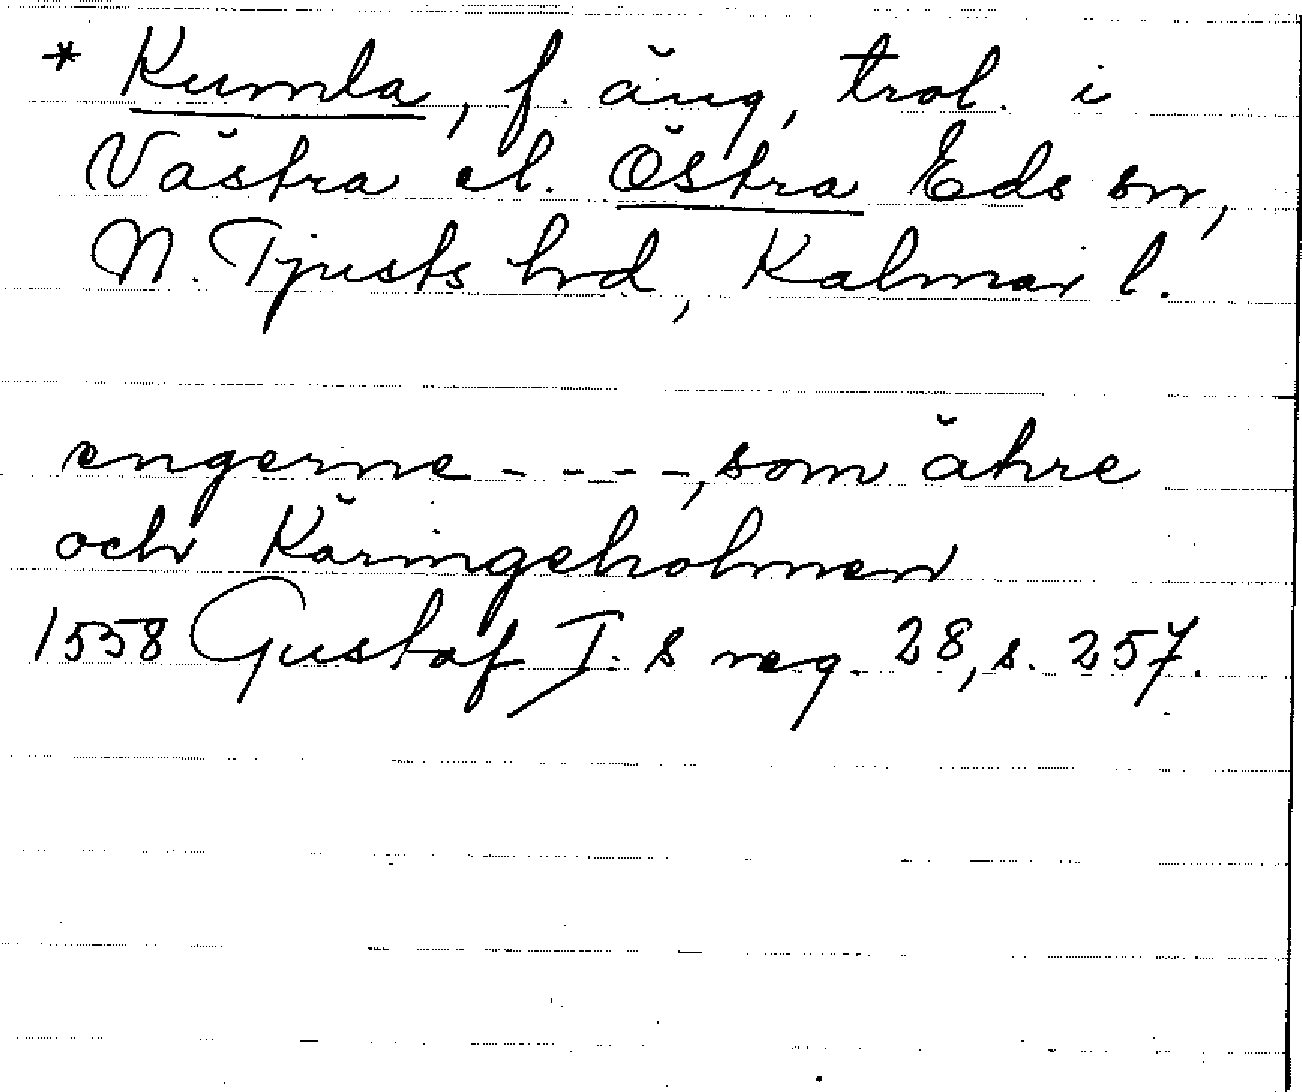 * Kumla, f. äng, trol. i
Västra el. Östra Eds sn,
N. Tjusts hrd, Kalmar l.
engerne - - - -, som ähre
och Käringeholmen
1558 Gustaf I. s reg. 28, s. 257.